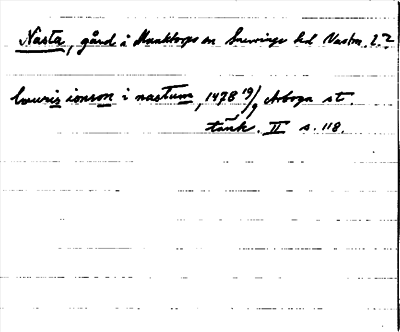 Nasta, gård i Munktorps sn Snevinge hd Vastm. l.?
lauris ionson i nastum, 1478 19/9 Arboga st.
tänk. II s. 118.